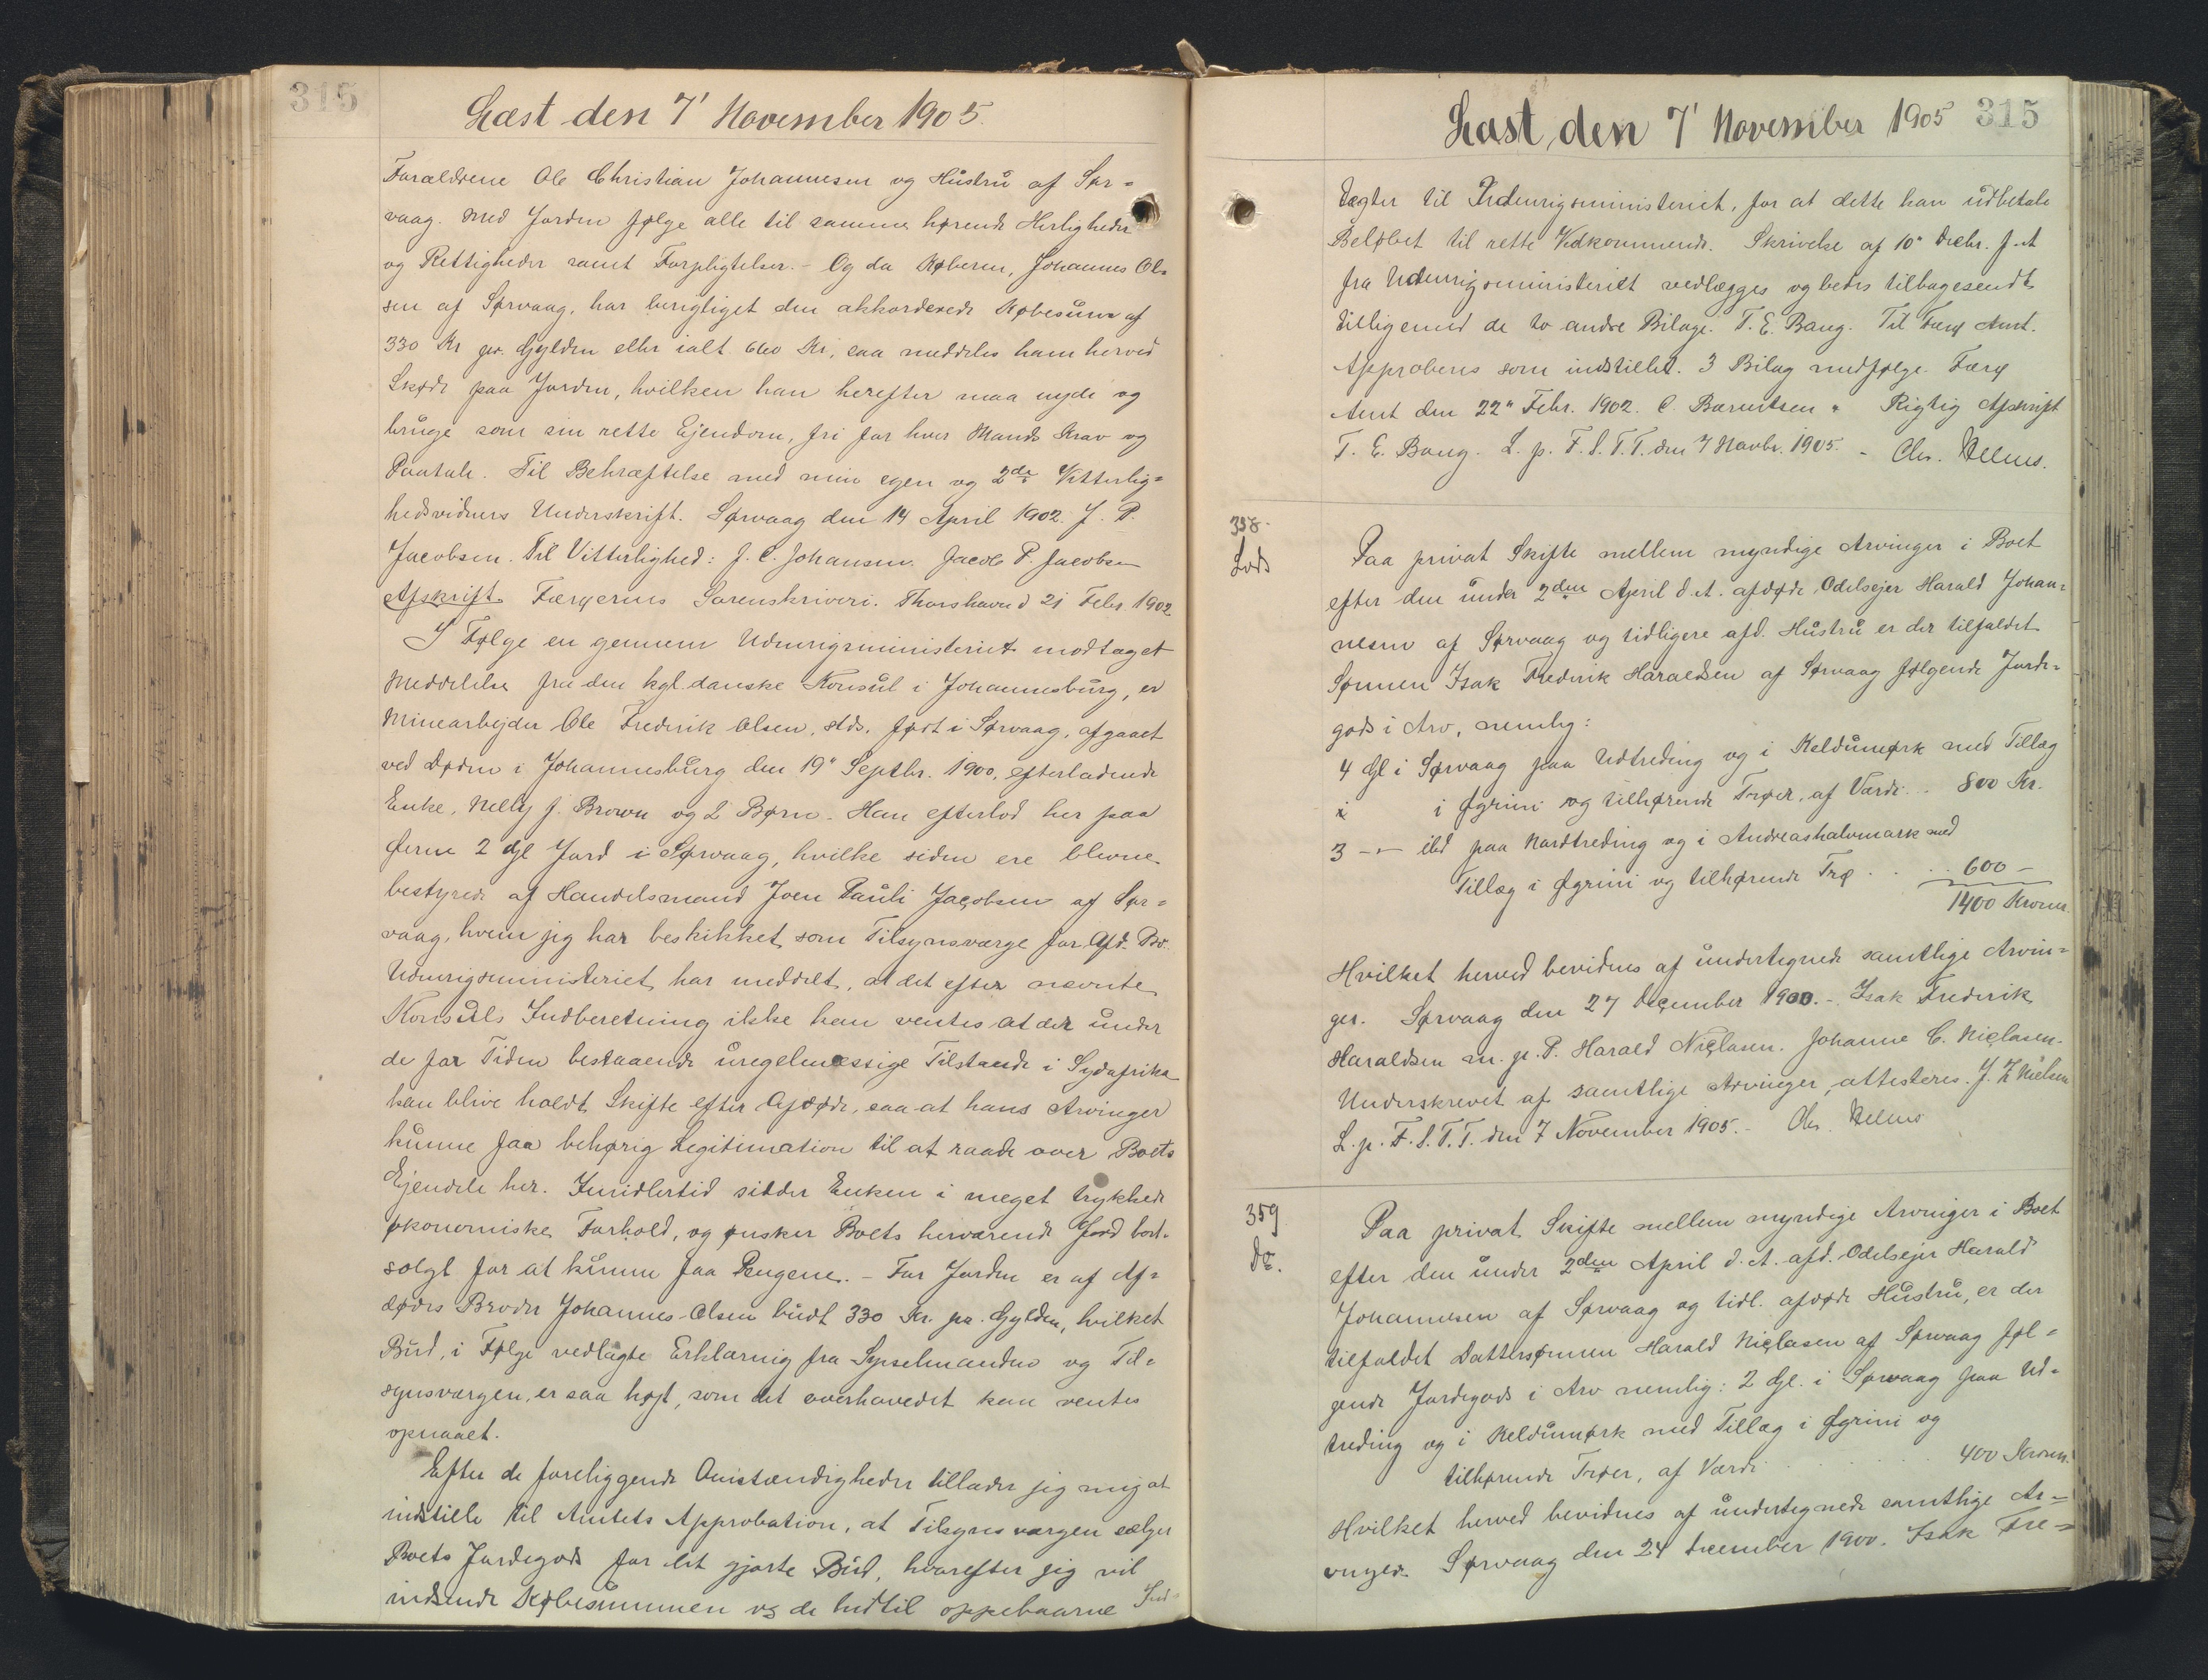 315
Læst den 7' November 1905.
Forældrene Ole Christian Johannesen og Hustru af Sør=
vaag. Med Jorden følge alle til samme hørende Herligheder
og Rettigheder samt Forpligtelser. - Og da Køberen, Johannes Ol=
sen af Sørvaag, har berigtiget den akkorderede Købesum af
330 Kr pr. Gylden eller ialt 660 Kr, saa meddeles ham herved
Skøde paa Jorden, hvilken han herefter maa nyde og
bruge som sin rette Ejendom, fri for hver Mands Krav og
Paatale. Til Bekræftelse med min egen og 2de Vitterlig=
hedsvidners Underskrift. Sørvaag den 14 April 1902. J. P.
Jacobsen. Til Vitterlighed: J. C. Johansen. Jacob P. Jacobsen
Afskrift. Færøernes Sorenskriveri. Thorshavn d 21 Febr. 1902
I Følge en gennem Udenrigsministeriet modtaget
Meddelelse fra den kgl. danske Konsul i Johannesburg, er
Minearbejder Ole Frederik Olsen, født i Sørvaag, afgaaet
ved Døden i Johannesburg den 19" Septbr. 1900, efterladende
Enke, Nelly J. Brown og 2 Børn. Han efterlod her paa
Øerne 2 Gl Jord i Sørvaag, hvilke siden ere blevne
bestyrede af Handelsmand Joen Pauli Jacobsen af Sør=
vaag, hvem jeg har beskikket som Tilsynsværge for Afd. Bo.
Udenrigsministeriet har meddelt, at det efter nævnte
Konsuls Indberetning ikke kan ventes at der under
de for Tiden bestaaende uregelmæssige Tilstande i Sydafrika
kan blive holdt Skifte efter Afdøde, saa at hans Arvinger
kunne faa behørig Legitimation til at raade over Boets
Ejendele her. Imidlertid sidder Enken i meget trykkede
økonomiske Forhold, og ønsker Boets herværende Jord bort-
solgt for at kunne faa Pengene. - For Jorden er af Af=
dødes Broder Johannes Olsen budt 330 Kr. pr. Gylden, hvilket
Bud, i Følge vedlagte Erklæring fra Sysselmanden og Til=
synsværgen, er saa højt, som det overhovedet kan ventes
opnaaet.
Efter de foreliggende Omstændigheder tillader jeg mig at
indstille til Amtets Approbation, at Tilsynsværgen sælger
Boets Jordegods for det gjorte Bud, hvorefter jeg vil
indsende Købesummen og de hidtil oppebaarne Ind-
Læst, den 7' November 1905 315
tægter til Indenrigsministeriet, for at dette kan udbetale
Beløbet til rette Vedkommende. Skrivelse af 10" Decbr. f. A
fra Udenrigsministeriet vedlægges og bedes tilbagesendt
tilligemed de to andre Bilage. T. E. Bang. Til Færø Amt.
Approberes som indstillet. 3 Bilag medfølge. Færø
Amt den 22" Febr. 1902. C. Bærentsen " Rigtig Afskrift
T. E. Bang. L. p. F. S. T. T. den 7 Novbr. 1905. - Chr. Helms.
358.
Lods
Paa privat Skifte mellem myndige Arvinger i Boet
efter den under 2den April d. A. afdøde Odelsejer Harald Johan=
nesen af Sørvaag og tidligere afd. Hustru er der tilfaldet
Sønnen Isak Frederik Haraldsen af Sørvaag følgende Jorde=
gods i Arv, nemlig:
4 Gl i Sørvaag paa Udtreding og i Keldumørk med Tillæg
i Øgrini og tilhørende Trøer, af Værdi .. 800 Kr.
3 -"- ibd paa Nordtreding og i Andreashalvmark med
Tillæg i Øgrini og tilhørende Trø . . . . 600 -
1400 Kroner.
Hvilket herved bevidnes af undertegnede samtlige Arvin=
ger. Sørvaag den 27 December 1900. - Isak Frederik
Haraldsen m. p. P. Harald Niclasen. Johanne C. Niclasen.
Underskrevet af samtlige Arvinger, attesteres. J. Z Nielsen
L. p. F. S. T. T. den 7 November 1905. - Chr. Helms
359
do.
Paa privat Skifte mellem myndige Arvinger i Boet
efter den under 2den April d. A. afd. Odelsejer Harald
Johannesen af Sørvaag og tidl. afdøde Hustru, er der
tilfaldet Dattersønnen Harald Niclasen af Sørvaag føl=
gende Jordegods i Arv nemlig: 2 Gl. i Sørvaag paa Ud=
treding og i Keldumørk med Tillæg i Øgrini og
tilhørende Trøer, af Værdi . . . . . . 400 Kroner.
Hvilket herved bevidnes af undertegnede samtlige Ar=
vinger. Sørvaag den 24 December 1900. Isak Fre=